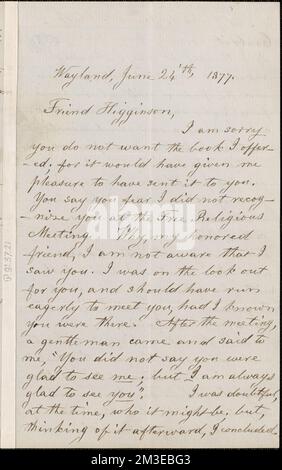 Wayland, June 24'th, 1877.
Friend Higginson,
I am sorry
you do not want the book I offer-
ed; for it would have given me
pleasure to have sent it to you.
You say you fear I did not recog-
nise you at the Free Religious
Meeting. Why, my honored
friend, I am not aware that I
saw you. I was on the look out
for you, and should have run
eagerly to meet you, had I known
you were there. After the meeting,
a gentleman came and said to
me, "You did not say you were
glad to see me; but I am always
glad to see you". I was doubtful,
at the time, who it might be, but,
thinking of it afterward, I concluded
alamy
Image ID: 2M3EBG3
www.alamy.com